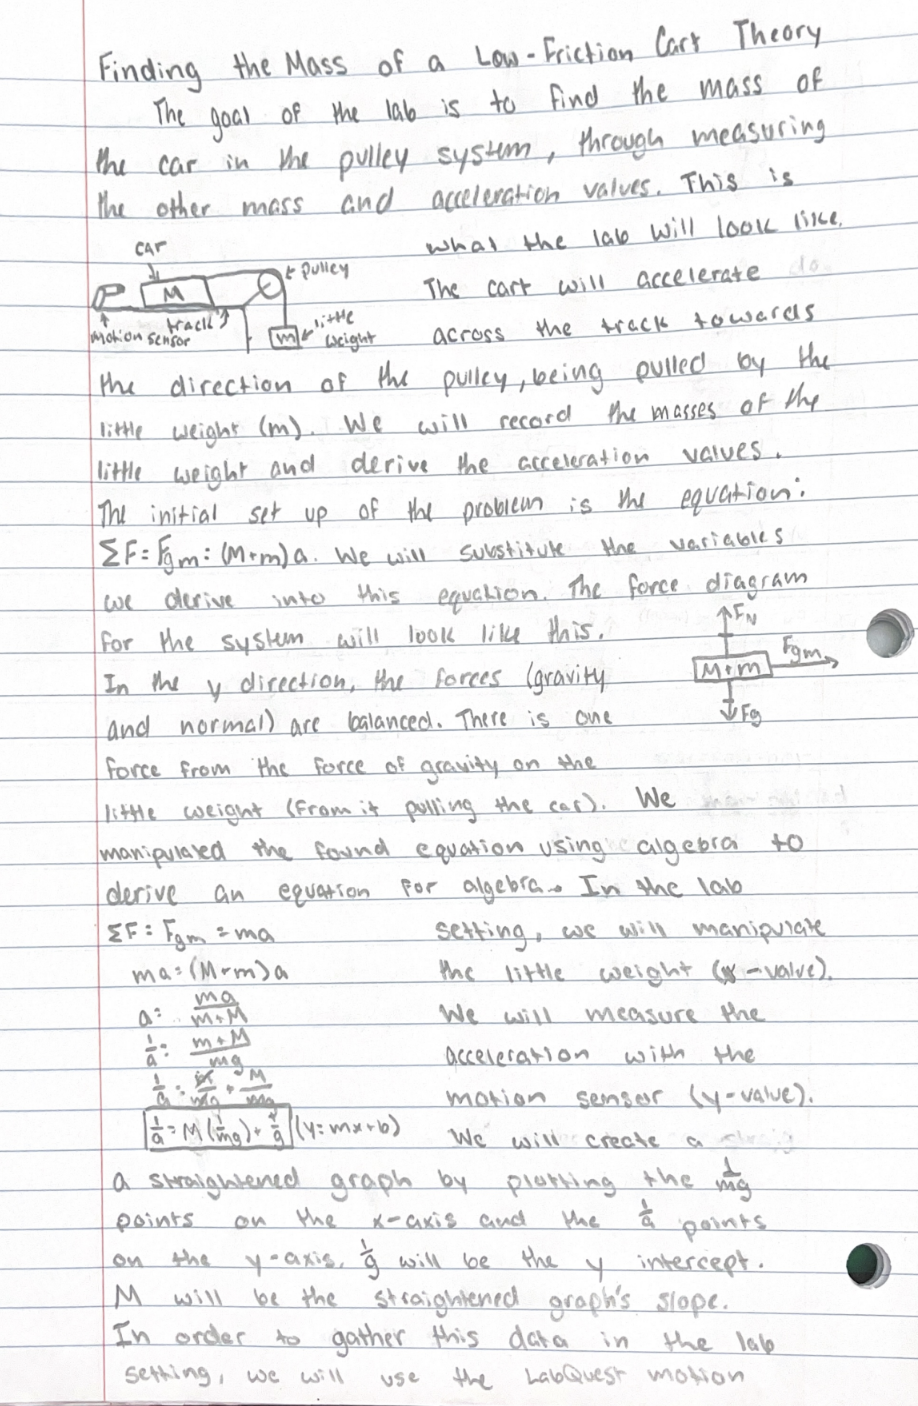 Finding the Mass of a Low-Friction Cart Theory
The goal of the lab is to find the mass of
the car in the pulley system, through measuring
the other mass and acceleration values. This is
what the lab will look like.
car
pulley
M
The cart will accelerate
motion sensor
track
m
little weight
across the track towards
the direction of the pulley, being pulled by the
little weight (m). We will record the masses of the
little weight and derive the acceleration values.
The initial set up of the problem is the equation:
ΣF = Fgm = (M+m)a. We will substitute the variables
we derive into this equation. The force diagram
for the system will look like this.
FN
M+m
Fgm
Fg
In the y direction, the forces (gravity
and normal) are balanced. There is one
force from the force of gravity on the
little weight (from it pulling the car). We
manipulated the found equation using algebra to
derive an equation for algebra. In the lab
ΣF = Fgm = ma
setting, we will manipulate
mg = (M+m)a
the little weight (x-value).
a = mg/m+M
We will measure the
1/a = m+M/mg
acceleration with the
1/a = m/mg + M/mg
motion sensor (y-value).
1/a = M(1/mg) + 1/g (y=mx+b)
We will create a
a straightened graph by plotting the 1/mg
points on the x-axis and the 1/a points
on the y-axis. 1/g will be the y intercept.
M will be the straightened graph's slope.
In order to gather this data in the lab
setting, we will use the LabQuest motion